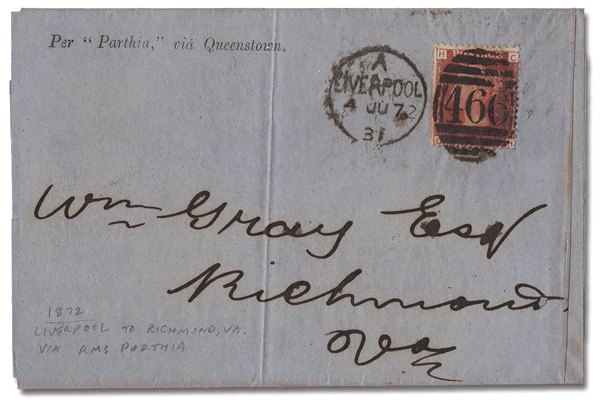 Per “Parthia,” viâ Queenstown.
A
LIVERPOOL
4 JU 72
31
H C
466
Wm Gray Esq
Richmond.
Va
1872
LIVERPOOL TO RICHMOND, VA.
VIA RMS PARTHIA